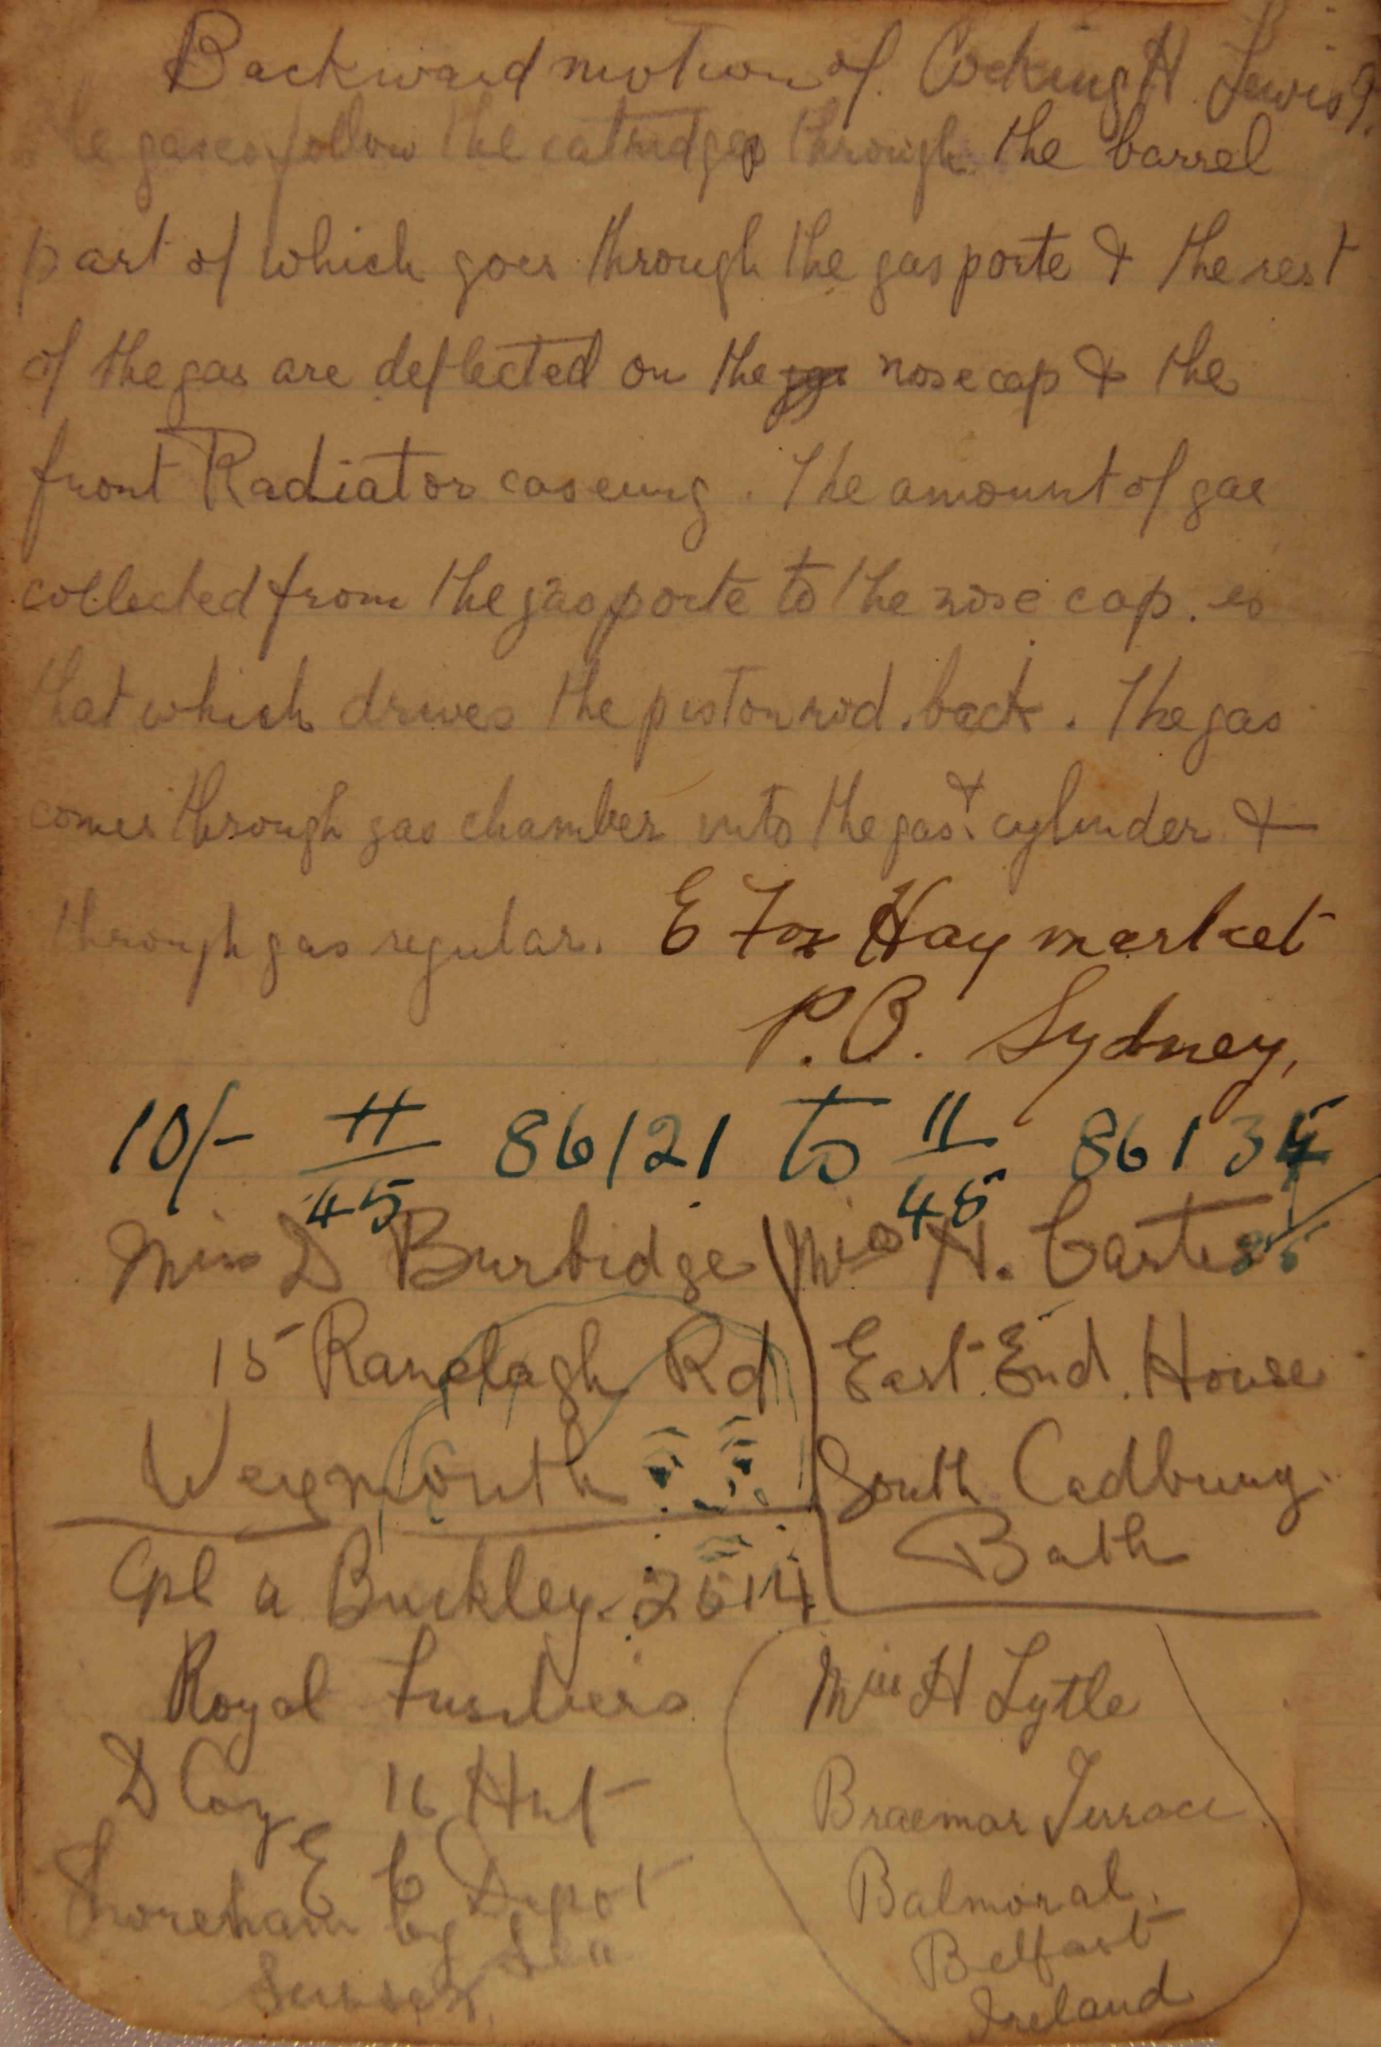 Backward motion of Cocking H Lewis G.
the gases follow the catridges through the barrel
part of which goes through the gas porte & the rest
of the gas are deflected on the nose cap & the
front Radiator caseing. The amount of gas
collected from the gas porte to the nose cap. is
that which drives the piston rod. back. The gas
comes through gas chamber into the gas & cylinder &
through gas regular.
E Fox Haymarket
P.O. Sydney,
10/- 11/45 86121 to 11/45 86135
85
Miss D Burbidge
15 Ranelagh Rd
Weymouth
Miss N. Carter
East End House
South Cadbury
Bath
Cpl A Buckley 2514
Royal Fusiliers
D Coy 16 Hut
E C Depot
Shoreham by Sea
Sussex
Miss H Lytle
Braemar Terrace
Balmoral.
Belfast
Ireland